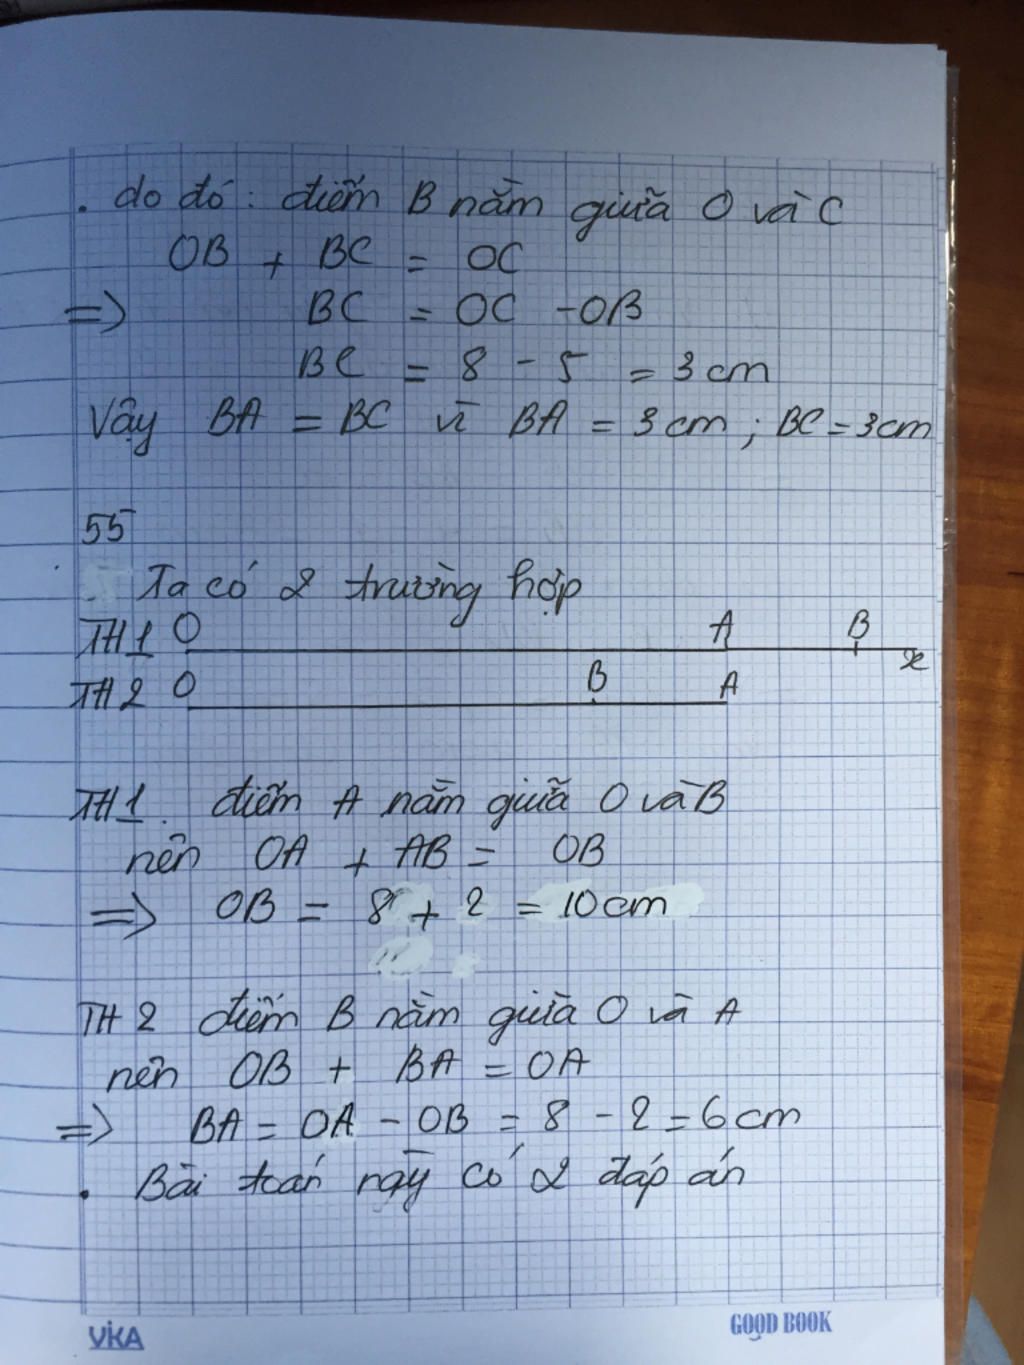 . do đó : điểm B nằm giữa O và C
OB + BC = OC
=> BC = OC - OB
BC = 8 - 5 = 3 cm
Vậy BA = BC vì BA = 3 cm ; BC = 3 cm
55
Ta có 2 trường hợp
TH 1 O A B x
TH 2 O B A
TH 1. điểm A nằm giữa O và B
nên OA + AB = OB
=> OB = 8 + 2 = 10 cm
TH 2 điểm B nằm giữa O và A
nên OB + BA = OA
=> BA = OA - OB = 8 - 2 = 6 cm
. Bài toán này có 2 đáp án
ViKA GOOD BOOK